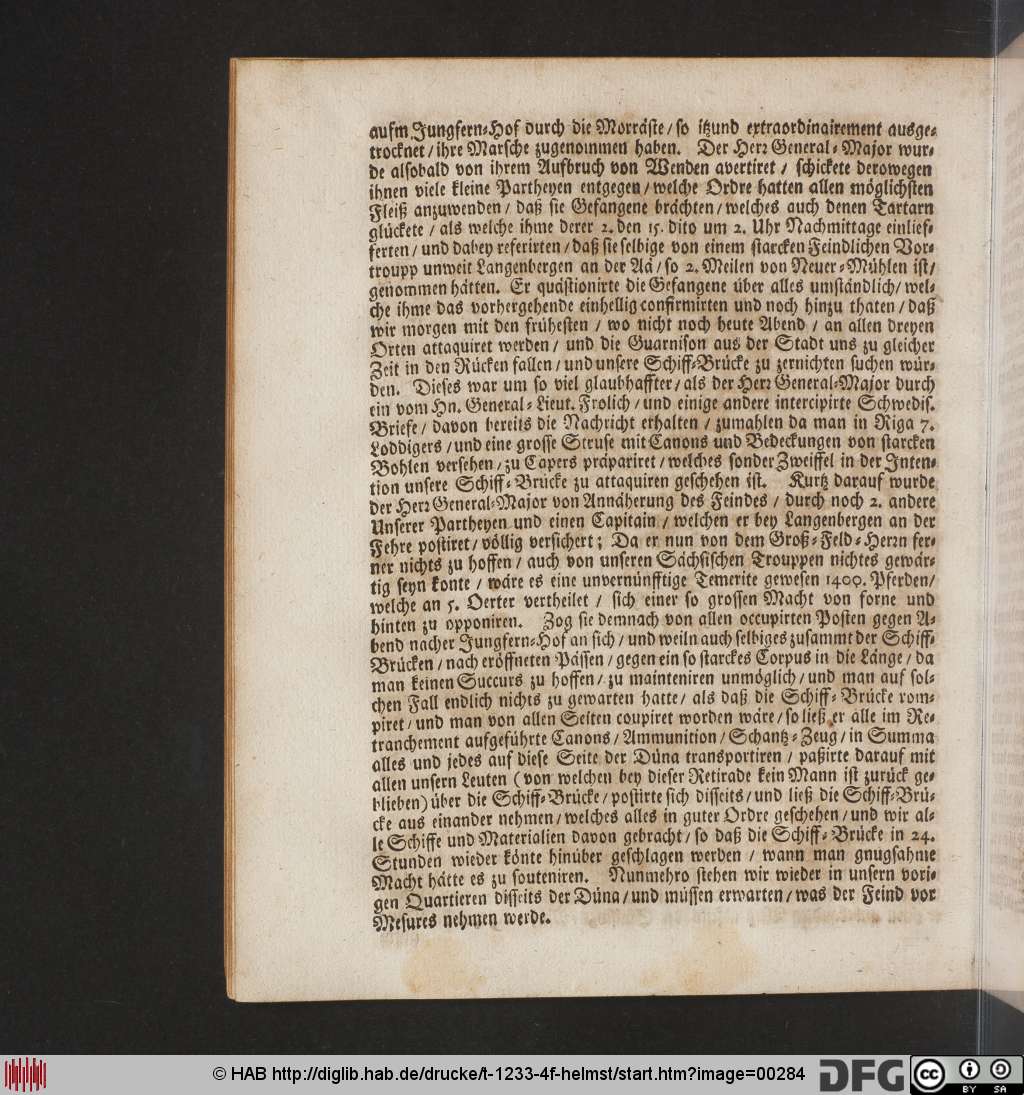 aufm Jungfern-Hof durch die Morräste / so itzund extraordinairement ausge-
trocknet / ihre Marsche zugenommen haben. Der Herr General-Major wur-
de alsobald von ihrem Aufbruch von Wenden avertiret / schickete derowegen
ihnen viele kleine Partheyen entgegen / welche Ordre hatten allen möglichsten
Fleiß anzuwenden / daß sie Gefangene brächten / welches auch denen Tartarn
glückete / als welche ihme derer 2. den 15. dito um 2. Uhr Nachmittage einlief-
ferten / und dabey referirten / daß sie selbige von einem starcken Feindlichen Vor-
troupp unweit Langenbergen an der Aa / so 2. Meilen von Neuer-Mühlen ist /
genommen hätten. Er quästionirte die Gefangene über alles umständlich / wel-
che ihme das vorhergehende einhellig confirmirten und noch hinzu thaten / daß
wir morgen mit den frühesten / wo nicht noch heute Abend / an allen dreyen
Orten attaquiret werden / und die Guarnison aus der Stadt uns zu gleicher
Zeit in den Rücken fallen / und unsere Schiff-Brücke zu zernichten suchen wür-
den. Dieses war um so viel glaubhaffter / als der Herr General-Major durch
ein vom Hn. General-Lieut. Frolich / und einige andere intercipirte Schwedis.
Briefe / davon bereits die Nachricht erhalten / zumahlen da man in Riga 7.
Loddigers / und eine grosse Struse mit Canons und Bedeckungen von starcken
Bohlen versehen / zu Capers präpariret / welches sonder Zweiffel in der Inten-
tion unsere Schiff-Brücke zu attaquiren geschehen ist. Kurtz darauf wurde
der Herr General-Major von Annäherung des Feindes / durch noch 2. andere
Unserer Partheyen und einen Capitain / welchen er bey Langenbergen an der
Fehre postiret / völlig versichert; Da er nun von dem Groß-Feld-Herrn fer-
ner nichts zu hoffen / auch von unseren Sächsischen Trouppen nichtes gewär-
tig seyn konte / wäre es eine unvernünfftige Temerite gewesen 1400. Pferden /
welche an 5. Oerter vertheilet / sich einer so grossen Macht von forne und
hinten zu opponiren. Zog sie demnach von allen occupirten Posten gegen A-
bend nacher Jungfern-Hof an sich / und weiln auch selbiges zusammt der Schiff-
Brücken / nach eröffneten Pässen / gegen ein so starckes Corpus in die Länge / da
man keinen Succurs zu hoffen / zu mainteniren unmöglich / und man auf sol-
chen Fall endlich nichts zu gewarten hatte / als daß die Schiff-Brücke rom-
piret / und man von allen Seiten coupiret worden wäre / so ließ er alle im Re-
tranchement aufgeführte Canons / Ammunition / Schantz-Zeug / in Summa
alles und jedes auf diese Seite der Düna transportiren / paßirte darauf mit
allen unsern Leuten ( von welchen bey dieser Retirade kein Mann ist zurück ge-
blieben) über die Schiff-Brücke / postirte sich disseits / und ließ die Schiff-Brü-
cke aus einander nehmen / welches alles in guter Ordre geschehen / und wir al-
le Schiffe und Materialien davon gebracht / so daß die Schiff-Brücke in 24.
Stunden wieder könte hinüber geschlagen werden / wann man gnugsahme
Macht hätte es zu souteniren. Nunmehro stehen wir wieder in unsern vori-
gen Quartieren disseits der Düna / und müssen erwarten / was der Feind vor
Mesures nehmen werde.
© HAB http://diglib.hab.de/drucke/t-1233-4f-helmst/start.htm?image=00284
DFG
cc BY SA